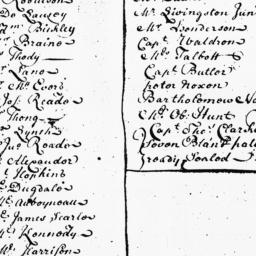 Robinson
De Lancey
Wm. Buckley
Braine
Thody
Lane
Mc. Evers
Jos: Reade
Thong
Lynch
Jno Reade
Alexander
Hopkins
Dugdale
James Searle
Kennedy
Harrison
Mr. Livingston Jun
Mr. Henderson
Capt. Waldron
Mr. Talbott
Capt. Butler
peter Noxon
Bartholomew
Mr. Ob: Hunt
Capt. Tho:
Seven Blank
ready Sealed